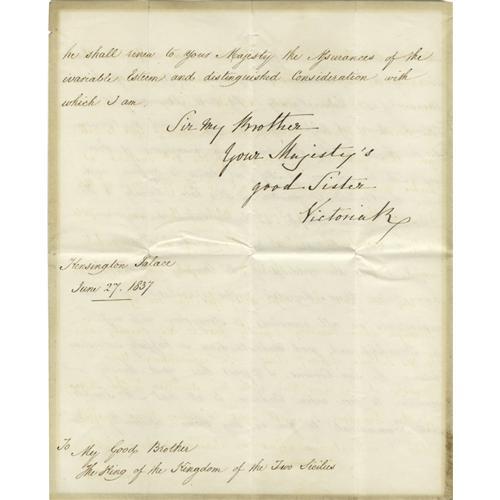 he shall renew to Your Majesty the Assurances of the
invariable Esteem and distinguished Consideration with
which I am,
Sir My Brother
Your Majesty's
good Sister
Victoria R
Kensington Palace
June 27. 1837
To My Good Brother
The King of the Kingdom of the Two Sicilies